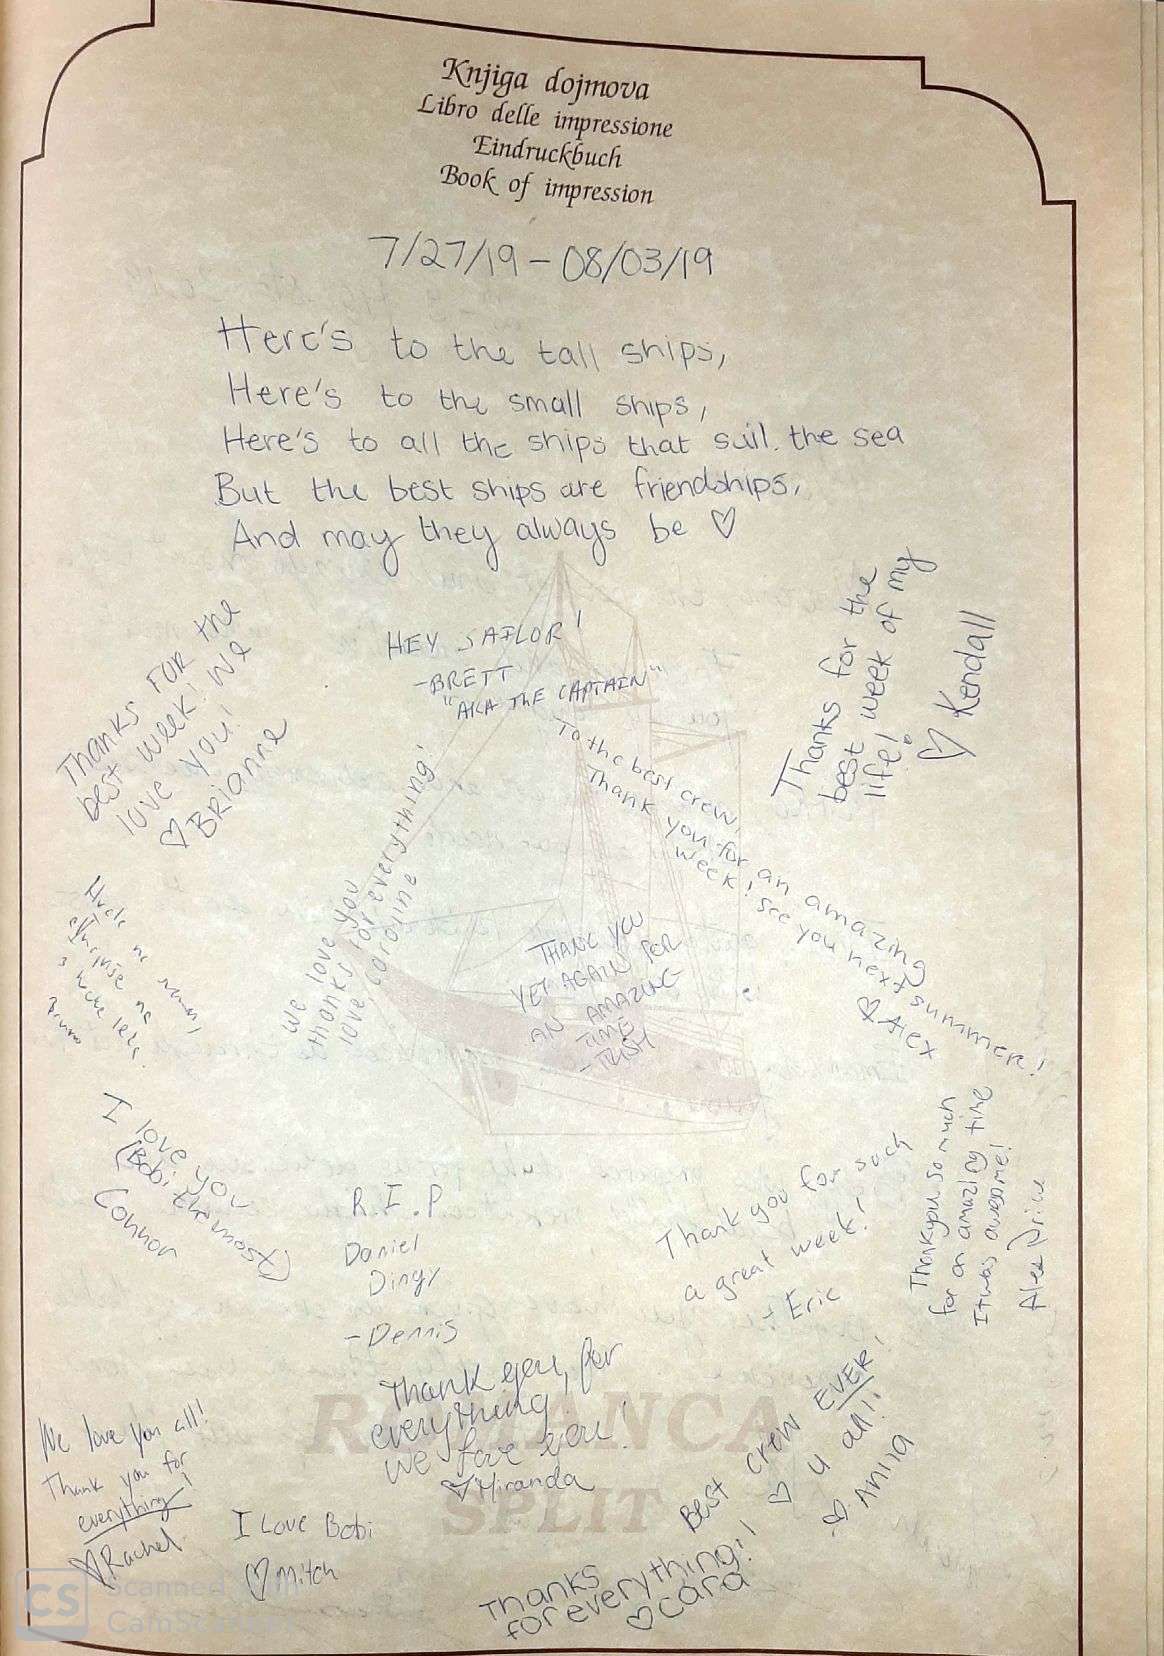 Knjiga dojmova
Libro delle impressione
Eindruckbuch
Book of impression
7/27/19 - 08/03/19
Here's to the tall ships,
Here's to the small ships,
Here's to all the ships that sail the sea
But the best ships are friendships,
And may they always be ♡
HEY SAILOR!
-BRETT
"AKA THE CAPTAIN"
Thanks for the
best week of my
life!
♡ Kendall
Thanks FOR the
best week! We
love you!
♡ Brianne
To the best crew,
Thank you for an amazing
week! See you next summer!
♡ Alex
we love you
thanks for everything!
love, caroline
THANK YOU
YET AGAIN FOR
AN AMAZING
TIME
-TUSH
I love you
(Bobi the most)
Connor
R.I.P
Daniel
Dingy
-Dennis
Thank you for such
a great week!
- Eric
Thankyou so much
for an amazing time
It was awesome!
Alex Price
Thank you, for
everything
we love you!
♡ Miranda
We love you all!
Thank you for
everything!
♡ Rachel
I Love Bobi
♡ Mitch
Best crew EVER!
♡ u all!
♡ Anina
Thanks
for everything!!
♡ Cara
ROMANCA
SPLIT
CS
Scanned with
CamScanner